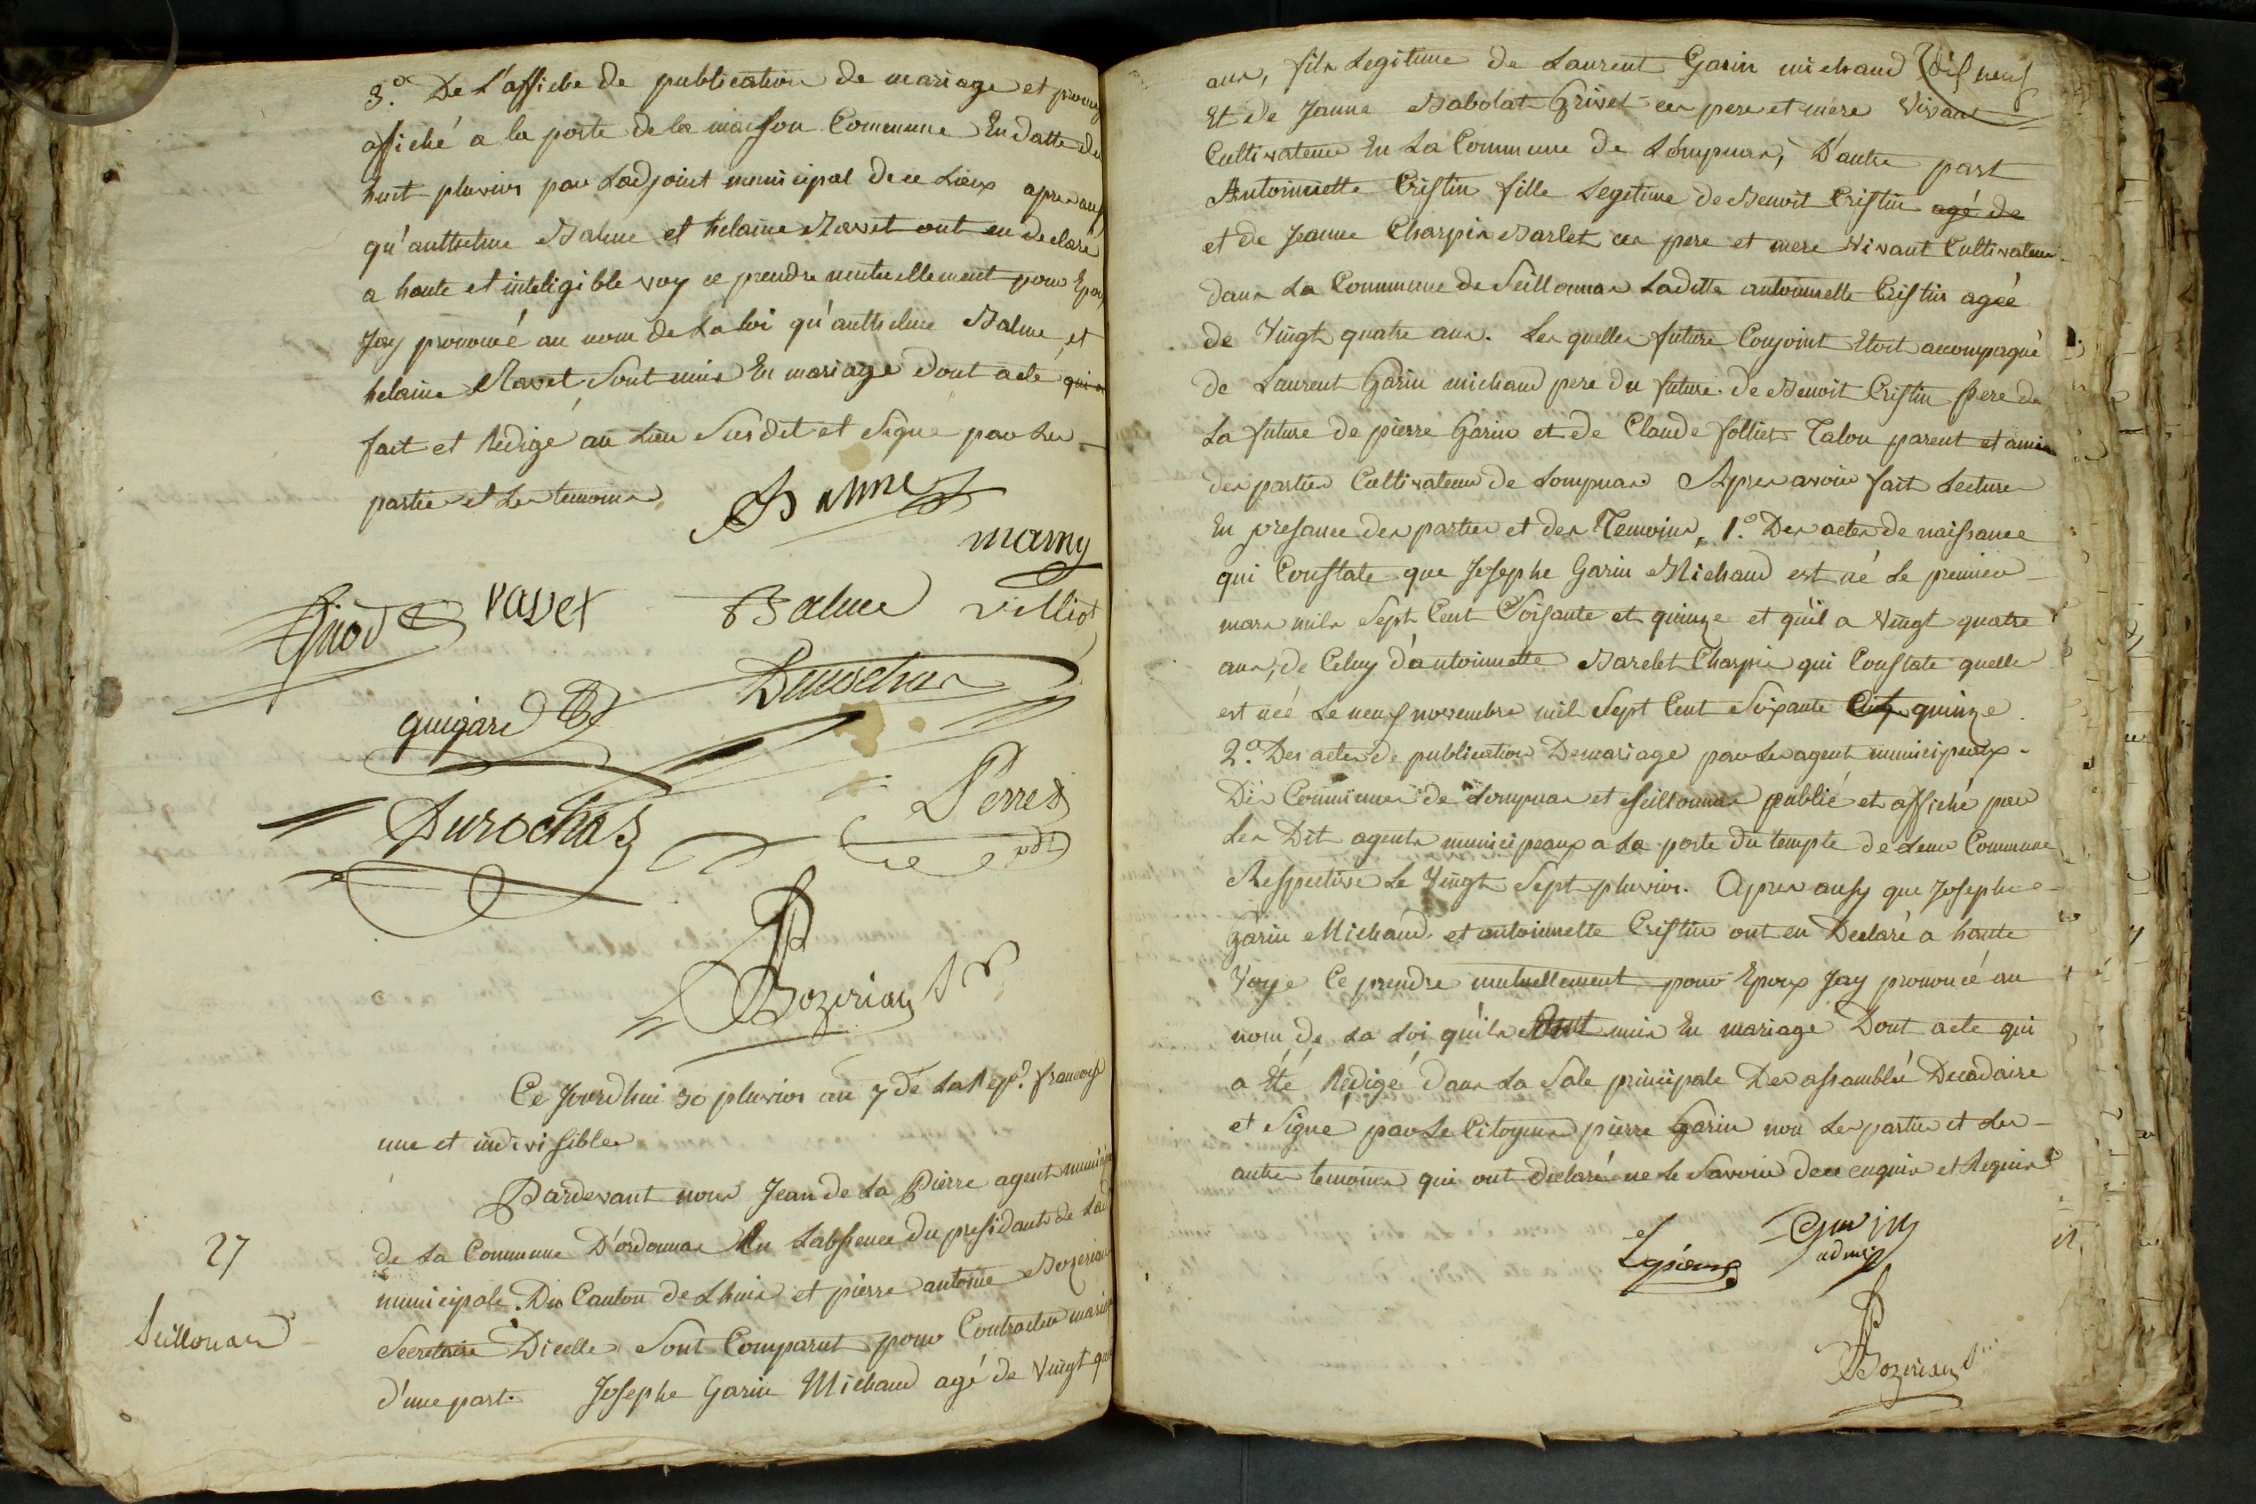 3.° De L'affiche de publication de mariage et
affiché a la porte de la maison Commune En datte du
huit pluvios par Ladjoint municipal de ce Lieux apres ausy
qu'anthelme Balme et helaine Ravet ont eu declaré
a haute et inteligible voy ce prendre mutuellement pour Epou
Jay prononcé au nom de La loi qu'anthelme Balme et
helaine Ravet Sont unis En mariage dont acte
fait et Redigé au Lieu Susdit et Signé par Les
partie et Les temoins
Balme
mamy
Quod
Ravet
Balme
villiot
guigard
Durochas
Durochas
Perret
adj
Bozerian Sre
Ce Jourdhui 30 pluvios an 7 de La Rep.e francoise
une et indivisible
27
Seillonas
Pardevant nous Jean de La Pierre agent munici
de La Commune D'ordonnas En Labsence du presidant de Lad
municipale. Du Canton de Lhuis et pierre antoine Bozerian
Secretaire Dicelle Sont Comparut pour Contracter mariag
d'une part Josephe Garin Michaud agé de Vingt qua
ans, fils Legitime de Laurent Garin michaud
Et de Janne Babolat Grivet ces pere et mere Vivant
Cultivateur En La Commune de Lompnas, D'autre part
Antoinette Cristin fille Legitime de Benoit Cristin agé de
et de Jeanne Charpin Barlet ces pere et mere Vivant Cultivateur
dans La Commune de Seillonnas Laditte antoinette Cristin agée
de Vingt quatre ans. Les quelles future Conjoint Etoit accompagné
de Laurent Garin michaud pere du future de Benoit Cristin pere de
La future de pierre Garin et de Claude folliet Talon parent et amis
des parties Cultivateur de Lompnas Apres avoir fait Lecture
En presance des parties et des Temoins, 1.° Des actes de naissance
qui Constate que Josephe Garin Michaud est né Le premier
mars mils Sept Cent Soisante et quinze et qu'il a Vingt quatre
ans, de Celuy d'antoinette Barelet Charpin qui Constate quelle
est néé Le neuf novembre mil Sept Cent Soixante quinze.
2.° Des actes de publication De mariage par Les agent municipeaux
Des Communes de Lompnas et Seillonnas publié et affiché par
Les Dit agents municipeaux a La porte du temple de Leur Commune
Respective Le Vingt Sept pluvios. Apres ausy que Josephe
garin Michaud et antoinette Cristin ont eu Declaré a haute
Voye Ce prendre mutuellement pour Epoux Jay prononcé au
nom de La Loi qu'ils Sont unis En mariage Dont acte qui
a Eté Redigé dans La Sale principale Des assamblée Decadaire
et Signé par Le Citoyens pierre Garin non Les parties et Les
autre temoins qui ont declaré ne Le Savoir de ce enquis et Requis
Garin
admi
Bozerian Sre